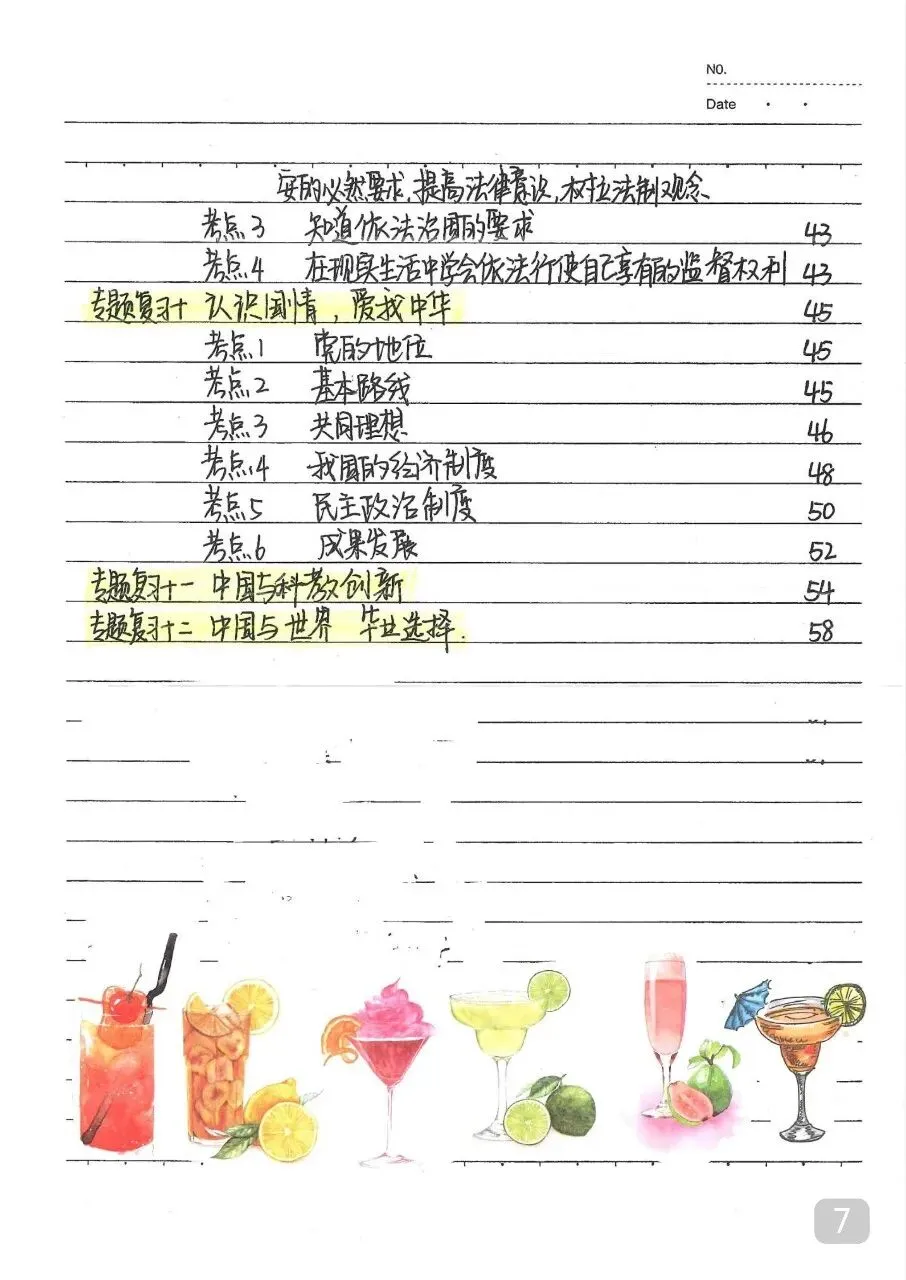 NO.
Date
安的必然要求,提高法律意识,树立法制观念
考点3 知道依法治国的要求 43
考点4 在现实生活中学会依法行使自己享有的监督权利 43
专题复习十 认识国情,爱我中华 45
考点1 党的地位 45
考点2 基本路线 45
考点3 共同理想 46
考点4 我国的经济制度 48
考点5 民主政治制度 50
考点6 成果发展 52
专题复习十一 中国与科教创新 54
专题复习十二 中国与世界 毕业选择. 58
7